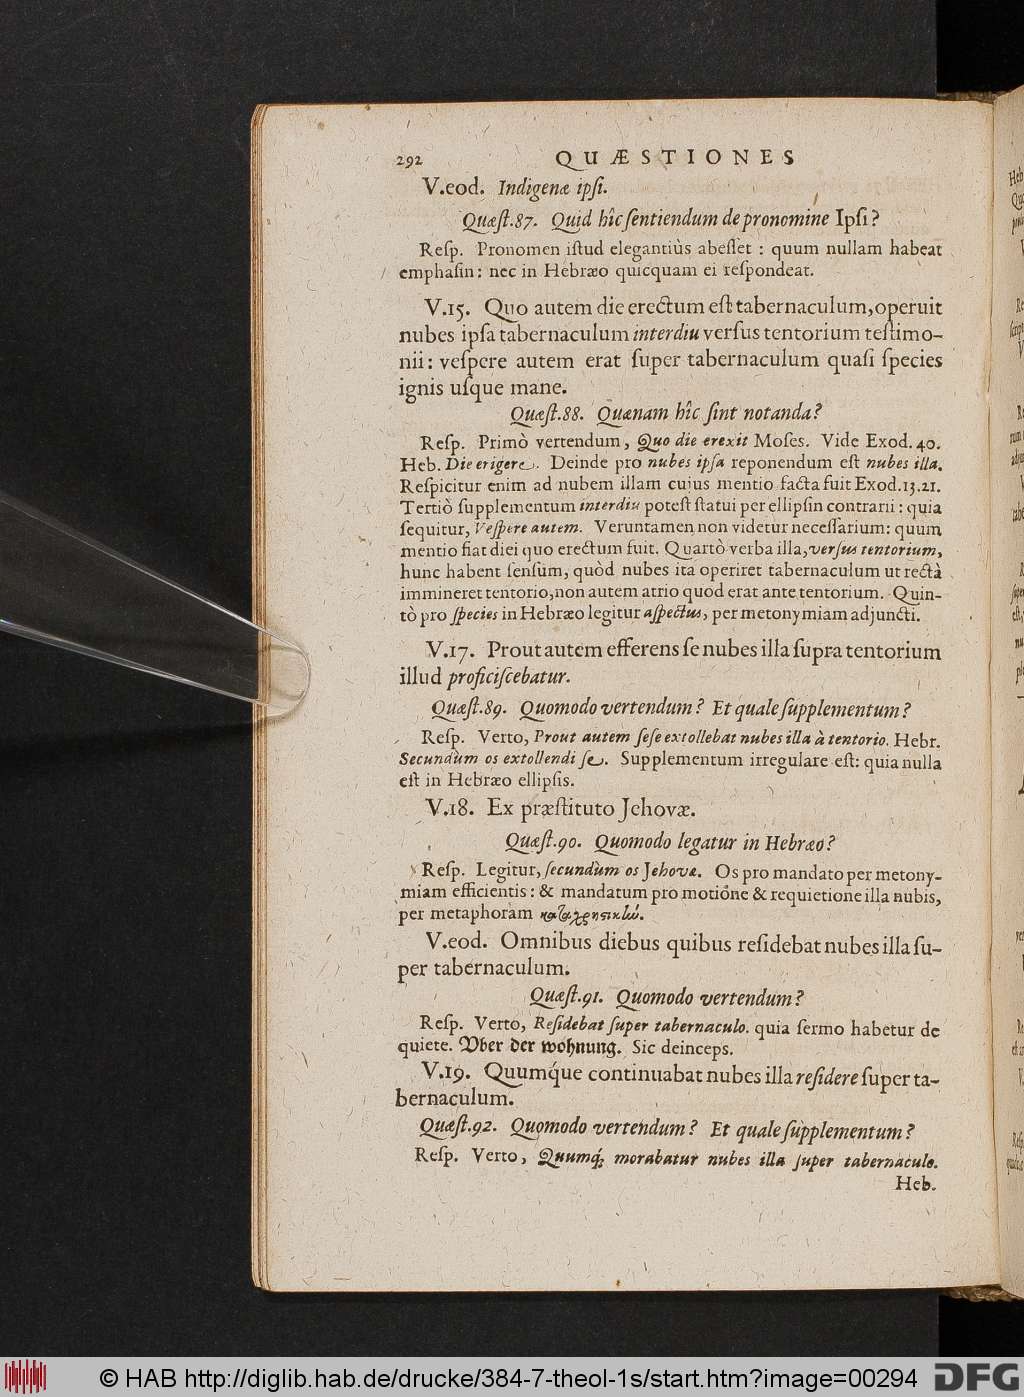 292 QUÆSTIONES
V.eod. Indigenæ ipſi.
Quæſt.87. Quid hîc ſentiendum de pronomine Ipſi?
Reſp. Pronomen iſtud elegantiùs abeſſet : quum nullam habeat
emphaſin: nec in Hebræo quicquam ei reſpondeat.
V.15. Quo autem die erectum eſt tabernaculum, operuit
nubes ipſa tabernaculum interdiu verſus tentorium teſtimo-
nii: veſpere autem erat ſuper tabernaculum quaſi ſpecies
ignis uſque mane.
Quæſt.88. Quænam hîc ſint notanda?
Reſp. Primò vertendum, Quo die erexit Moſes. Vide Exod. 40.
Heb. Die erigere. Deinde pro nubes ipſa reponendum eſt nubes illa.
Reſpicitur enim ad nubem illam cujus mentio facta fuit Exod.13.21.
Tertiò ſupplementum interdiu poteſt ſtatui per ellipſin contrarii: quia
ſequitur, Veſpere autem. Veruntamen non videtur neceſſarium: quum
mentio fiat diei quo erectum fuit. Quartò verba illa, verſus tentorium,
hunc habent ſenſum, quòd nubes ita operiret tabernaculum ut rectà
immineret tentorio, non autem atrio quod erat ante tentorium. Quin-
tò pro ſpecies in Hebræo legitur aſpectus, per metonymiam adjuncti.
V.17. Prout autem efferens ſe nubes illa ſupra tentorium
illud proficiſcebatur.
Quæſt.89. Quomodo vertendum? Et quale ſupplementum?
Reſp. Verto, Prout autem ſeſe extollebat nubes illa à tentorio. Hebr.
Secundùm os extollendi ſe. Supplementum irregulare eſt: quia nulla
eſt in Hebræo ellipſis.
V.18. Ex præſtituto Jehovæ.
Quæſt.90. Quomodo legatur in Hebræo?
Reſp. Legitur, ſecundùm os Jehovæ. Os pro mandato per metony-
miam efficientis: & mandatum pro motione & requietione illa nubis,
per metaphoram καταχρηστικὼς.
V.eod. Omnibus diebus quibus reſidebat nubes illa ſu-
per tabernaculum.
Quæſt.91. Quomodo vertendum?
Reſp. Verto, Reſidebat ſuper tabernaculo. quia ſermo habetur de
quiete. Vber der wohnung. Sic deinceps.
V.19. Quumq́ue continuabat nubes illa reſidere ſuper ta-
bernaculum.
Quæſt.92. Quomodo vertendum? Et quale ſupplementum?
Reſp. Verto, Quumq́; morabatur nubes illa ſuper tabernaculo.
Heb.
© HAB http://diglib.hab.de/drucke/384-7-theol-1s/start.htm?image=00294
DFG